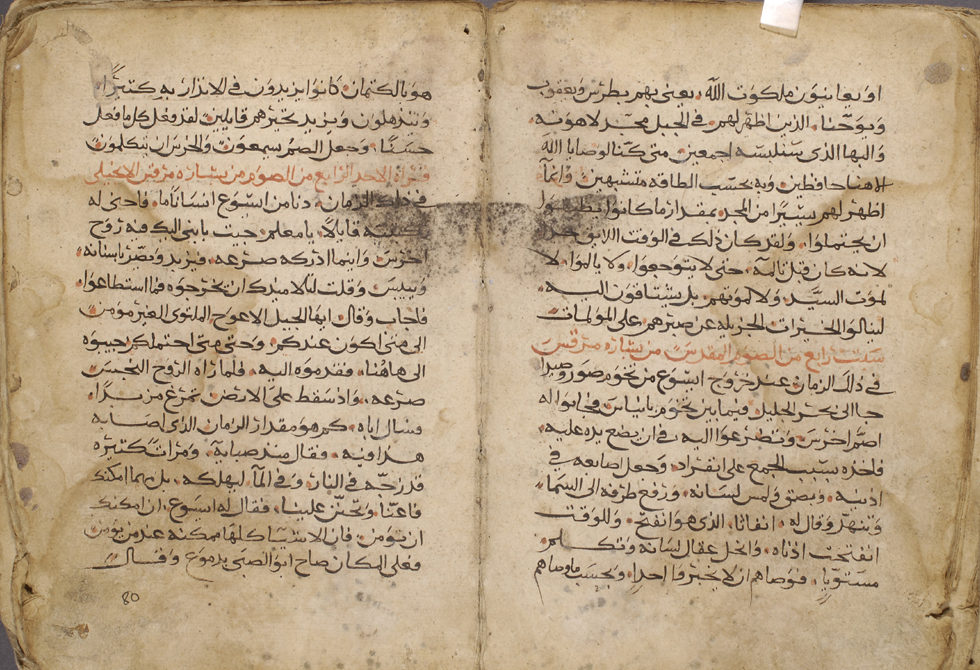 او يعاينون ملكوت الله . يعني بهم بطرس ويعقوب
ويوحنا . الذين اظهر لهم في الجبل مجد لاهوته .
والبها الذي سنلبسه اجمعين . متى كنا لوصايا الله
الاهنا حافظين . وبه بحسب الطاقه متشبهين . وانما
اظهر لهم يسيرا من المجد . بمقدار ما كانوا يطيقوا
ان يحتملوا . ولقد كان ذلك في الوقت اللايق جدا
لانه كان قبل تالمه . حتى لا يتوجعوا . ولا يالموا . لا
لموت السيد . ولا لموتهم . بل يشتاقون اليه .
لينالوا الخيرات الجزيله عن صبرهم على المولمات
سبت رابع من الصوم المقدس من بشاره مرقس
في ذلك الزمان عند خروج ايسوع من تخوم صور وصيدا
جا الى بحر الجليل . فيما بين تخوم فجابوا اله
اصم اخرس . وتضرعوا اليه في ان يضع يده عليه .
فاخذه بسبب الجمع على انفراد . وجعل اصابعه في
اذنيه . وبصق ولمس لسانه . ورفع طرفه الى السما
وتنهد وقال له . انفاثا . الذي هو انفتح . وللوقت
انفتحت اذناه . وانحل عقال لسانه وتكلم
مستويا . فوصاهم ان لا يخبروا احدا . وبحسب ما وصاهم
هو بالكتمان . كانوا يزيدون في الانذار به كثيرا .
وتذهلون ويزيد تحيرهم قايلين . لقد فعل كلما فعل
حسنا . وجعل الصم سيمعون . والخرسان يتكلمون
قراة الاحد الرابع من الصوم من بشاره مرقس الانجيلي
في ذلك الزمان . دنا من ايسوع انسانا ما . فاحنى له
ركبتيه قايلا . يا معلم جيت بابني اليك فيه روح
اخرس . واينما ادركه صرعه . فيزبد ويصر باسنانه .
وييبس . وقلت لتلاميدك ان يخرجوه فما استطاعوا .
فاجاب وقال . ايها الجيل الاعوج الملتوي الغير مومن
الى متى اكون عندكم . وحتى متى احتملكم جيبوه
الى هاهنا . فقدموه اليه . فلما راه الروح النجس
صرعه . واذ سقط على الارض تمرغ مزبدا .
فسال اباه . كم هو مقدار الزمان الذي اصابه
هدا فيه . فقال مند صبايه . ومرات كثيره
قد زجه في النار . وفي الما ليهلكه . بل مهما امكنك
فاعنا . وتحنن علينا . فقال له ايسوع . ان امكنك
ان تومن . فان الاشيا كلها ممكنه عند من يومن
فعلى المكان صاح ابو الصبي بدموع . وقال
80